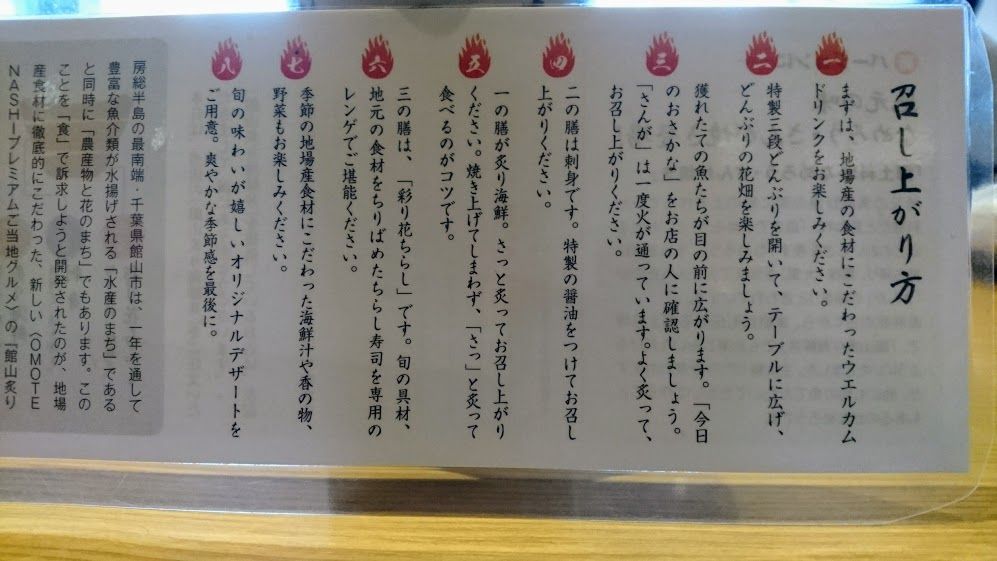 召し上がり方
一
まずは、地場産の食材にこだわったウエルカム
ドリンクをお楽しみください。
二
特製三段どんぶりを開いて、テーブルに広げ、
どんぶりの花畑を楽しみましょう。
三
獲れたての魚たちが目の前に広がります。「今日
のおさかな」をお店の人に確認しましょう。
「さんが」は一度火が通っています。よく炙って、
お召し上がりください。
四
二の膳は刺身です。特製の醤油をつけてお召し
上がりください。
五
一の膳が炙り海鮮。さっと炙ってお召し上がり
ください。焼き上げてしまわず、「さっ」と炙って
食べるのがコツです。
六
三の膳は、「彩り花ちらし」です。旬の具材、
地元の食材をちりばめたちらし寿司を専用の
レンゲでご堪能ください。
七
季節の地場産食材にこだわった海鮮汁や香の物、
野菜もお楽しみください。
八
旬の味わいが嬉しいオリジナルデザートを
ご用意。爽やかな季節感を最後に。
房総半島の最南端・千葉県館山市は、一年を通して
豊富な魚介類が水揚げされる「水産のまち」である
と同時に「農産物と花のまち」でもあります。この
ことを「食」で訴求しようと開発されたのが、地場
産食材に徹底的にこだわった、新しい〈OMOTE
NASHIプレミアムご当地グルメ〉の「館山炙り